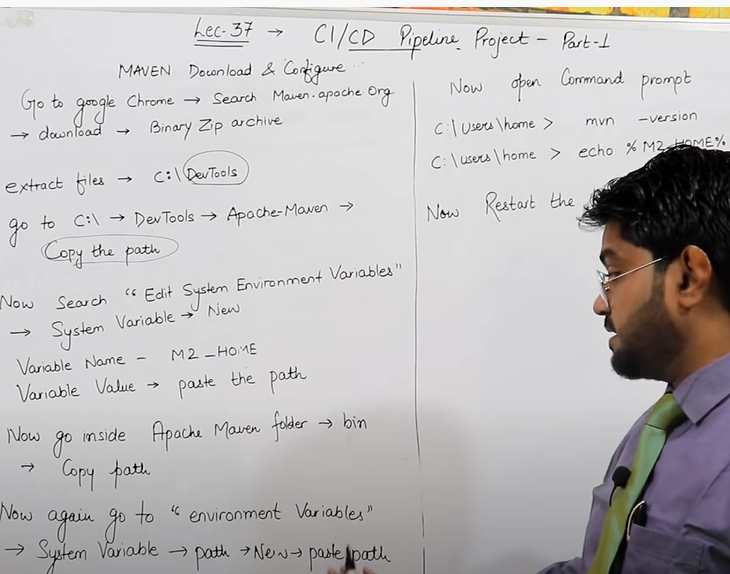 Lec-37 → CI/CD Pipeline Project - Part-1
MAVEN Download & Configure
Go to google Chrome → Search Maven.apache Org
→ download → Binary Zip archive
extract files → C:\ DevTools
go to C:\ → DevTools → Apache-Maven →
Copy the path
Now Search "Edit System Environment Variables"
→ System Variable → New
Variable Name - M2_HOME
Variable Value → paste the path
Now go inside Apache Maven folder → bin
→ Copy path
Now again go to "environment Variables"
→ System Variable → path → New → paste path
Now open Command prompt
C:\Users\home > mvn -version
C:\users\home > echo %M2_HOME%
Now Restart the